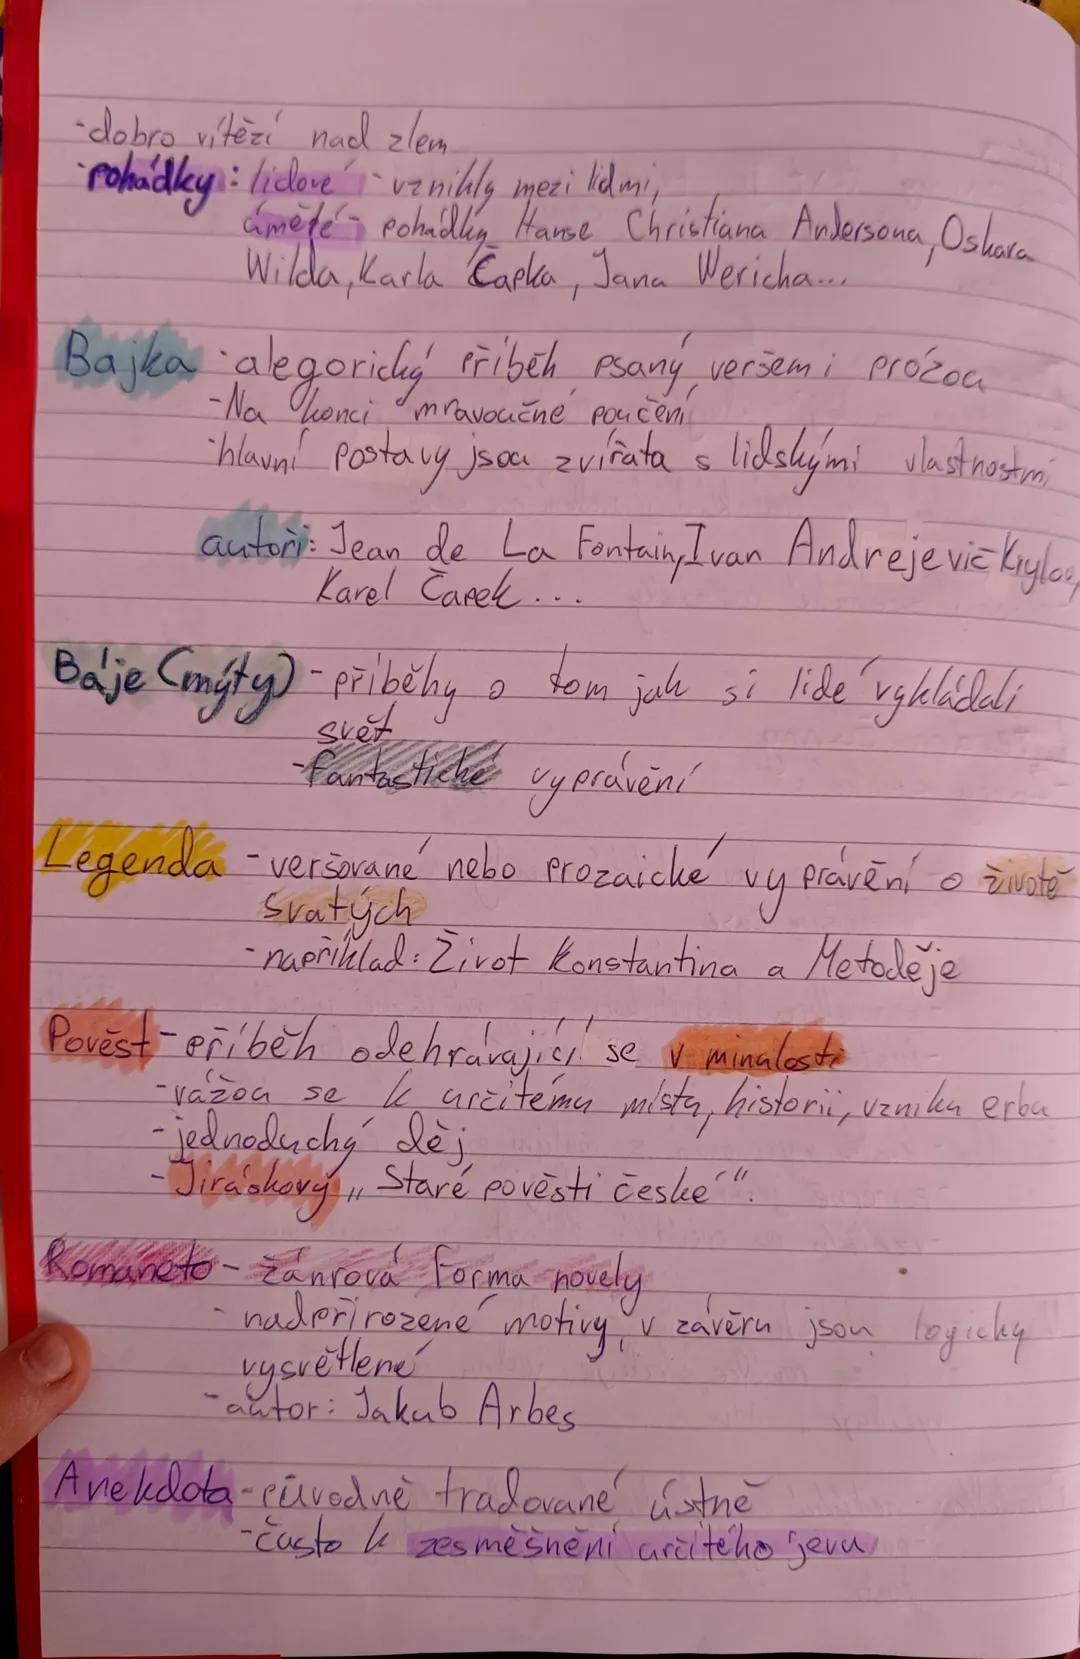 -dobro vítězí nad zlem
-pohádky: lidové - vznikly mezi lidmi,
úmělé - pohádky Hanse Christiana Andersona, Oskara
Wilda, Karla Čapka, Jana Wericha...
Bajka -alegorický příběh psaný veršem i prózou
-Na konci mravoučné poučení
-hlavní postavy jsou zvířata s lidskými vlastnostmi
autoři: Jean de La Fontain, Ivan Andrejevič Krylov,
Karel Čapek...
Báje (mýty) -příběhy o tom jak si lidé vykládali
svět
-fantastické vyprávění
Legenda -veršované nebo prozaické vyprávění o životě
svatých
-například: Život Konstantina a Metoděje
Pověst -příběh odehrávající se v minulosti
-vážou se k určitému místu, historii, vzniku erbu
-jednoduchý děj
-Jiráskovy „Staré pověsti české".
Romaneto - žánrová forma novely
-nadpřirozené motivy, v závěru jsou logicky
vysvětlené
-autor: Jakub Arbes
Anekdota -původně tradované ústně
-často k zesměšnění určitého jevu